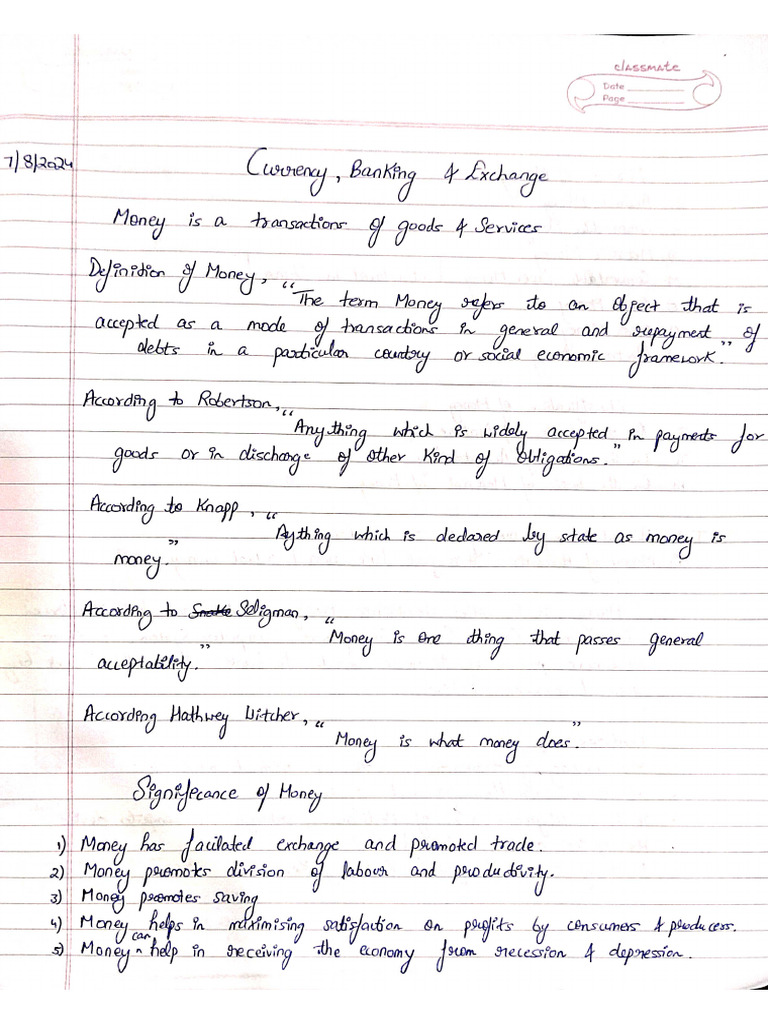 classmate
Date
Page
7/8/2024
Currency, Banking & Exchange
Money is a transactions of goods & Services
Definition of Money, "
The term Money refers to an object that is
accepted as a mode of transactions in general and repayment of
debts in a particular country or social economic framework."
According to Robertson, "
Anything which is widely accepted in payments for
goods or in discharge of other kind of obligations."
According to Knapp, "
Aything which is declared by state as money is
money."
According to Seligman, "
Money is one thing that passes general
acceptability."
According Hathwey Witcher, "
Money is what money does."
Significance of Money
1) Money has faciliated exchange and promoted trade.
2) Money promotes division of labour and productivity.
3) Money promotes saving
4) Money helps in maximising satisfaction on profits by consumers & producers.
5) Money can help in receiving the economy from recession & depression.